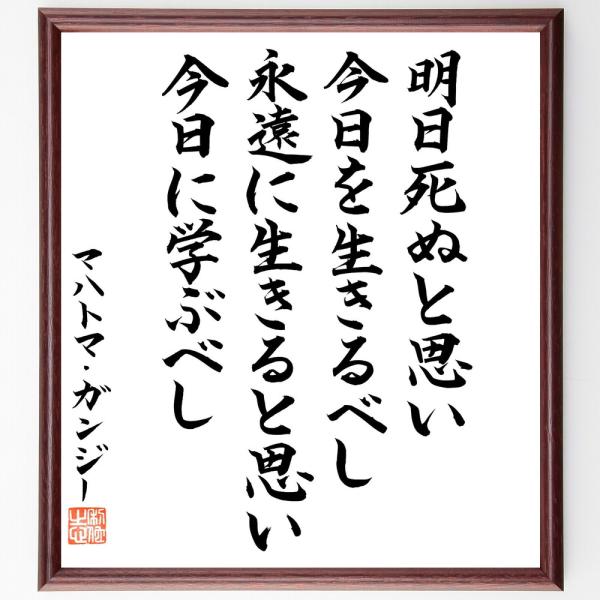 明日死ぬと思い
今日を生きるべし
永遠に生きると思い
今日に学ぶべし
マハトマ・ガンジー